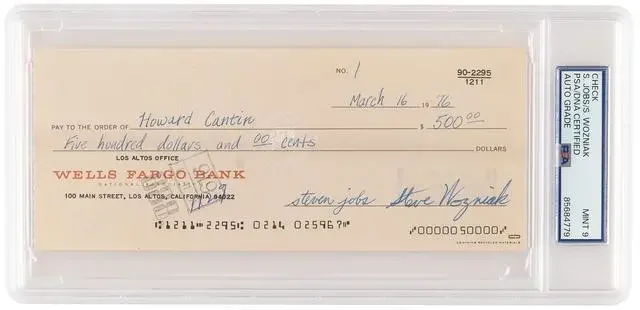 NO. 1
90-2295
1211
March 16 1976
PAY TO THE ORDER OF Howard Cantin $ 500 00
Five hundred dollars and 00 cents DOLLARS
LOS ALTOS OFFICE
WELLS FARGO BANK
100 MAIN STREET, LOS ALTOS, CALIFORNIA 94022
steven jobs Steve Wozniak
⑆1211⑉2295⑆ 0214 025967⑈ ⑈0000050000⑈
CHECK
S. JOBS/S. WOZNIAK
PSA/DNA CERTIFIED
AUTO GRADE
PSA
MINT 9
85684779